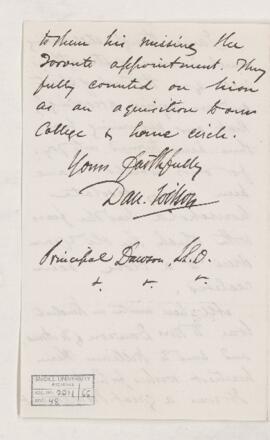 to them his missing the
Toronto appointment. They
fully counted on him
as an aquisition to our
College & home circle.
Yours faithfully
Dan. Wilson
Principal Dawson, LL.D.
&. &. &.
McGILL UNIVERSITY
ARCHIVES
ACC. NO. 2211 | 65
REF. 48